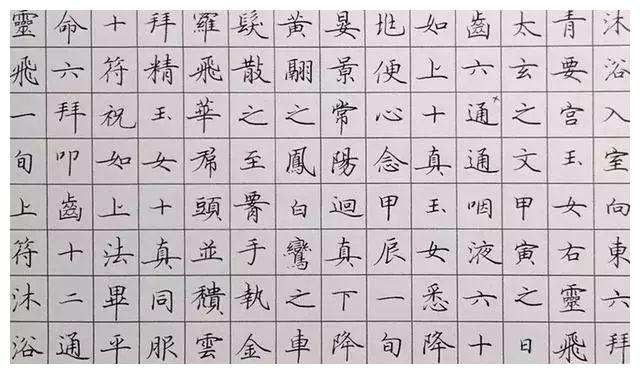 沐浴入室向東六拜
青要宫玉女右靈飛
太玄之文甲寅之日
齒六通通咽液六十
如上十真玉女悉降
地便心念甲辰一旬
晏景常陽迴真下降
黄翮之鳳白鸞之車
髮散之至手執金
羅飛華帬頭並穨雲
拜精玉女十真同服
十符祝如上法畢平
命六拜叩齒十二通
靈飛一旬上符沐浴